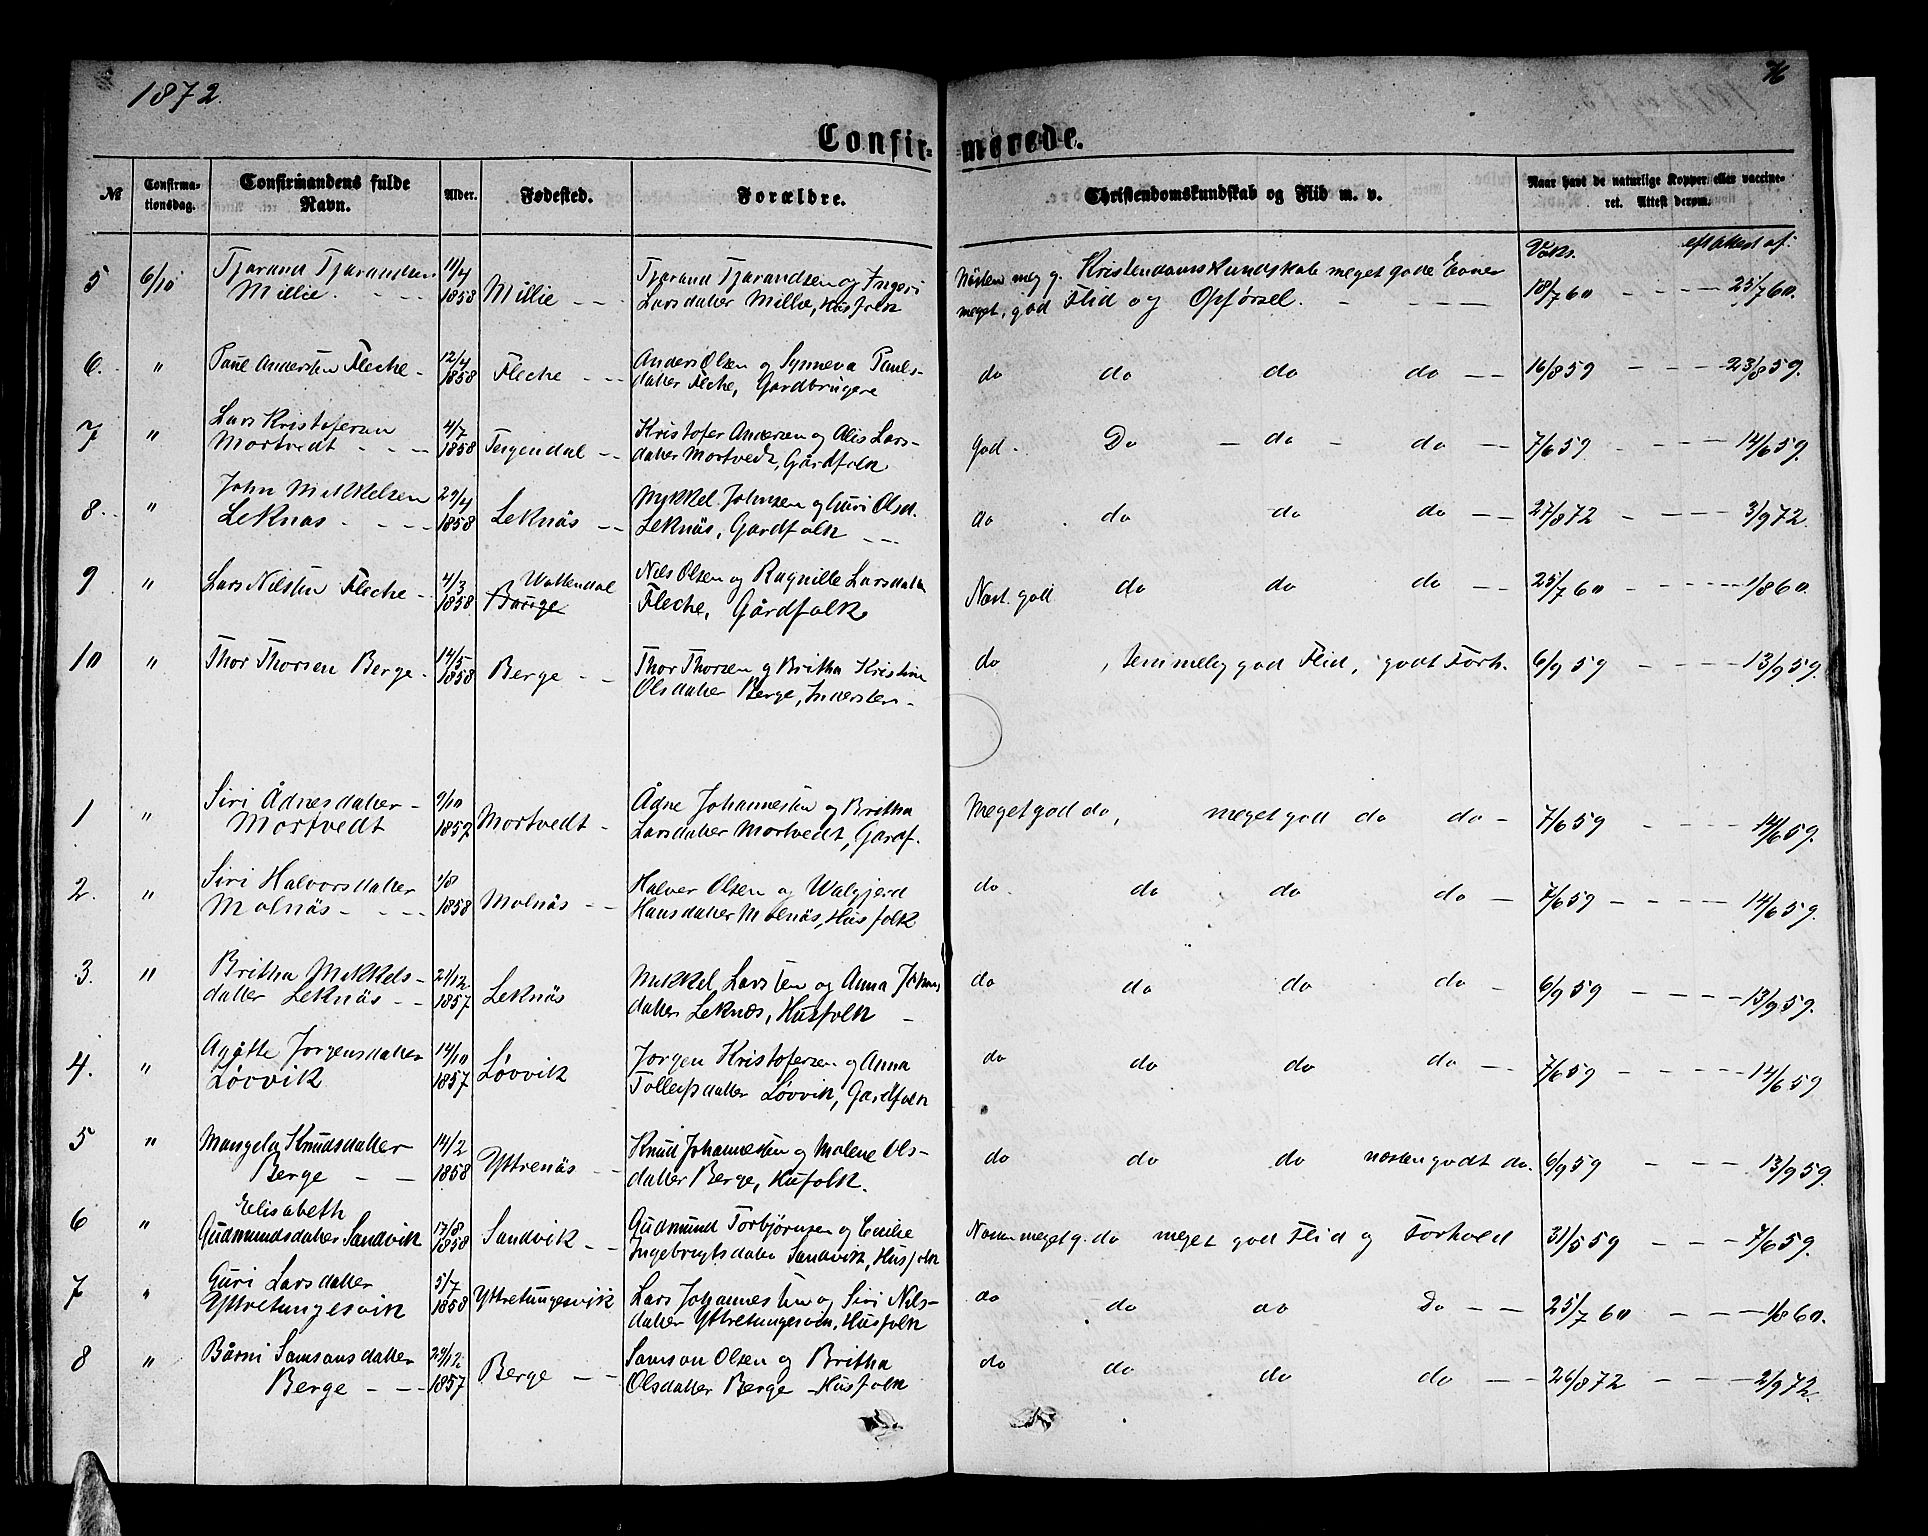 1872.
Confirmerede.
№ Confirmationsdag. Confirmandens fulde Navn. Alder. Fødested. Forældre. Christendomskundskab og Flid m. v. Naar havt de naturlige Kopper eller vaccineret. Attest derom.
Vaks. eft attest af:
5 6/10 Tjarand Tjarandsen 11/4 Tjarand Tjarandsen og Ingeri Næsten meg g. Kristendoms Kundskab meget gode Evner
Millie. - - - 1858 Millie - - - Larsdatter Millie, Husfolk meget god Flid og Opførsel. - - - - 18/7 60 - - - - 25/7 60.
6. " Paul Andersen Fleche - 12/4 1858 Fleche - - - Anders Olsen og Synneva Pauls- do do do do - - 16/8 59 - - - - 23/8 59.
datter Fleche, Gardbrugere
7 " Lars Kristofersen 4/7 Kristofer Andersen og Alis Lars- God. Do - do - do - - 7/6 59 - - - - 14/6 59.
Mortvedt - - - 1858 - - datter Mortvedt, Gårdfolk
8. " John Mikkelsen 29/4 Mykkel Johnsen og Guri Olsd. do do do do - - 27/8 72 - - - - 3/9 72.
Leknäs. - - - 1858 Leknäs - - Leknäs, Gardfolk - -
9 " Lars Nilsen Fleche - - 4/3 Wattendal Nels Olsen og Ragnille Larsdatter Næst. god do do do - - 25/7 60 - - - - 1/8 60.
1858. Bauge Fleche, Gårdfolk
10 " Thor Thorsen Berge - 14/5 1858 Berge - - Thor Thorsen og Britha Kristine do , temmelig god Flid, godt Forh. 6/9 59 - - - - 13/9 59.
Olsdatter Berge, Indersters -
1 " Siri Ådnesdatter - 9/10 Ådne Johannessen og Britha Meget god do, meget god do do - 7/6 59 - - - - 14/6 59.
Mortvedt 1857 Mortvedt - Larsdatter Mortvedt, Gardf.
2. " Siri Halvorsdatter 1/8 Halver Olsen og Walgjerd do. do do do - 7/6 59 - - - - 14/6 59.
Molnäs - - - - 1858 Molnäs - - Hansdatter Molnäs, Husfolk
3. " Britha Mikkels- 21/12 Mikkel Larssen og Anna Johns do do do do - 6/9 59 - - - - 13/9 59.
datter Leknäs - - 1857 Leknäs datter Leknæs, Husfolk -
4. " Agåtte Jorgensdatter 14/10 Jorgen Kristofersen og Anna do do do do - - 7/6 59 - - - - 14/6 59
Løvvik 1857 Løvvik Tollefsdatter Løvvik, Gardfolk
5 " Mangela Knudsdatter 14/2 Knud Johannessen og Malene Ols- do do do næsten godt do. 6/9 59 - - - 13/9 59.
Berge - - 1858 Yttrenäs - - datter Berge, Husfolk.
Elisabeth
6 " Gudmundsdatter Sandvik 17/8 1858 Sandvik - - Gudmund Torbjørnsen og Cecilie Næsten meget g. do meget god Flid og Forhold 31/5 59 - - - 7/6 59.
Ingebrigtsdatter Sandvik, Husfolk
7 " Guri Larsdatter 5/7 Lars Johannessen og Siri Nels- do do do Do - - 25/7 60 - - - - 1/8 60.
Yttretungesvik 1858 Yttretungesvik datter Yttretungesvik, Husfolk
8 " Bårni Samsonsdatter 29/12 Samson Olsen og Britha do do do do - - 26/8 72 - - - 2/9 72.
Berge - - - 1857 Berge - - Olsdatter Berge - Husfolk